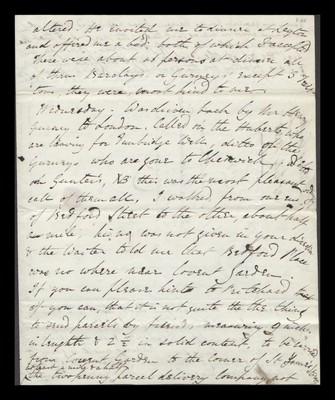 altered. He invited me to dinner at Leyton
and offered me a bed, both of which I accepted
There were about 20 persons at dinner all
of them Barclays or Gurneys except 3 or
two, they were most kind to me
Wednesday. Was driven back by Mr Henry
Gurney to London. Called on the Huberts who
are leaving for Tunbridge Wells, ditto on the
Gurneys who are gone to Chenwich, ditto
on Gunters, NB this was the most pleasant
call of them all. I walked from one end
of Bedford Street to the other about half
a mile. No. was not given in your direction
& the Waiter told me that Bedford Place
was no where near Covent Garden.
If you can please hint to Pritchard
if you can, that it is not quite the thing
to send parcels by friends, measuring 9 inch.
in length & 2 ½ in solid content, to be carried
from Covent Garden to the corner of St James's
about a mile & a half
The two penny parcel delivery company not